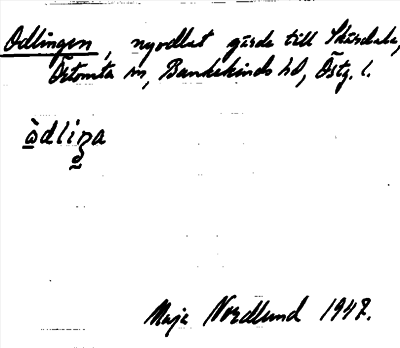 Odlingen, nyodlat gärde till Skärsdala,
Örtomta sn, Bankekinds hd, Östg. l.
òdliŋa
Maja Nordlund 1947.